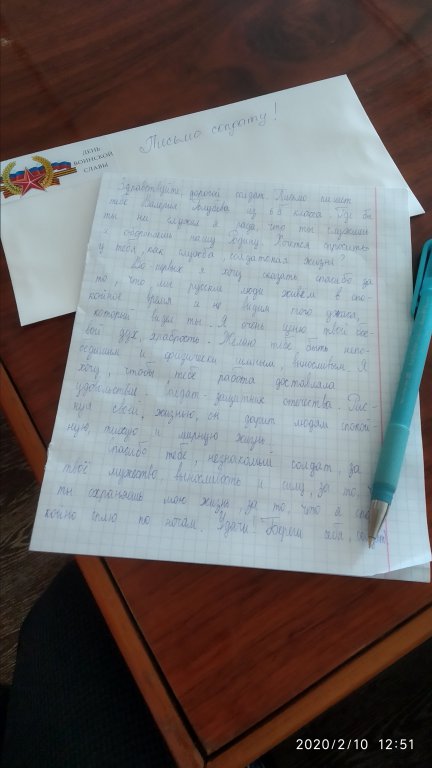 ДЕНЬ
ВОИНСКОЙ
СЛАВЫ
Письмо солдату!
Здравствуйте, дорогой солдат. Письмо пишет
тебе Валерия из 6б класса. Где бы
ты ни служил я рада, что ты служишь
и охраняешь нашу Родину. Хочется спросить
у тебя, как служба, солдатская жизнь?
Во-первых я хочу сказать спасибо за
то, что мы русские люди живём в спо-
койное время и не видим того ужаса,
который видел ты. Я очень ценю твой бое-
вой дух, храбрость. Желаю тебе быть непо-
бедимым и физически сильным, выносливым. Я
хочу, чтобы тебе работа доставляла
удовольствие. Солдат-защитник отечества. Рис-
куя своей жизнью, он дарит людям спокой-
ную, тихую и мирную жизнь.
Спасибо тебе, незнакомый солдат, за
твоё мужество, выносливость и силу, за то,
ты сохраняешь мою жизнь, за то, что я спо-
койно сплю по ночам. Удачи! Береги себя,
2020/2/10 12:51